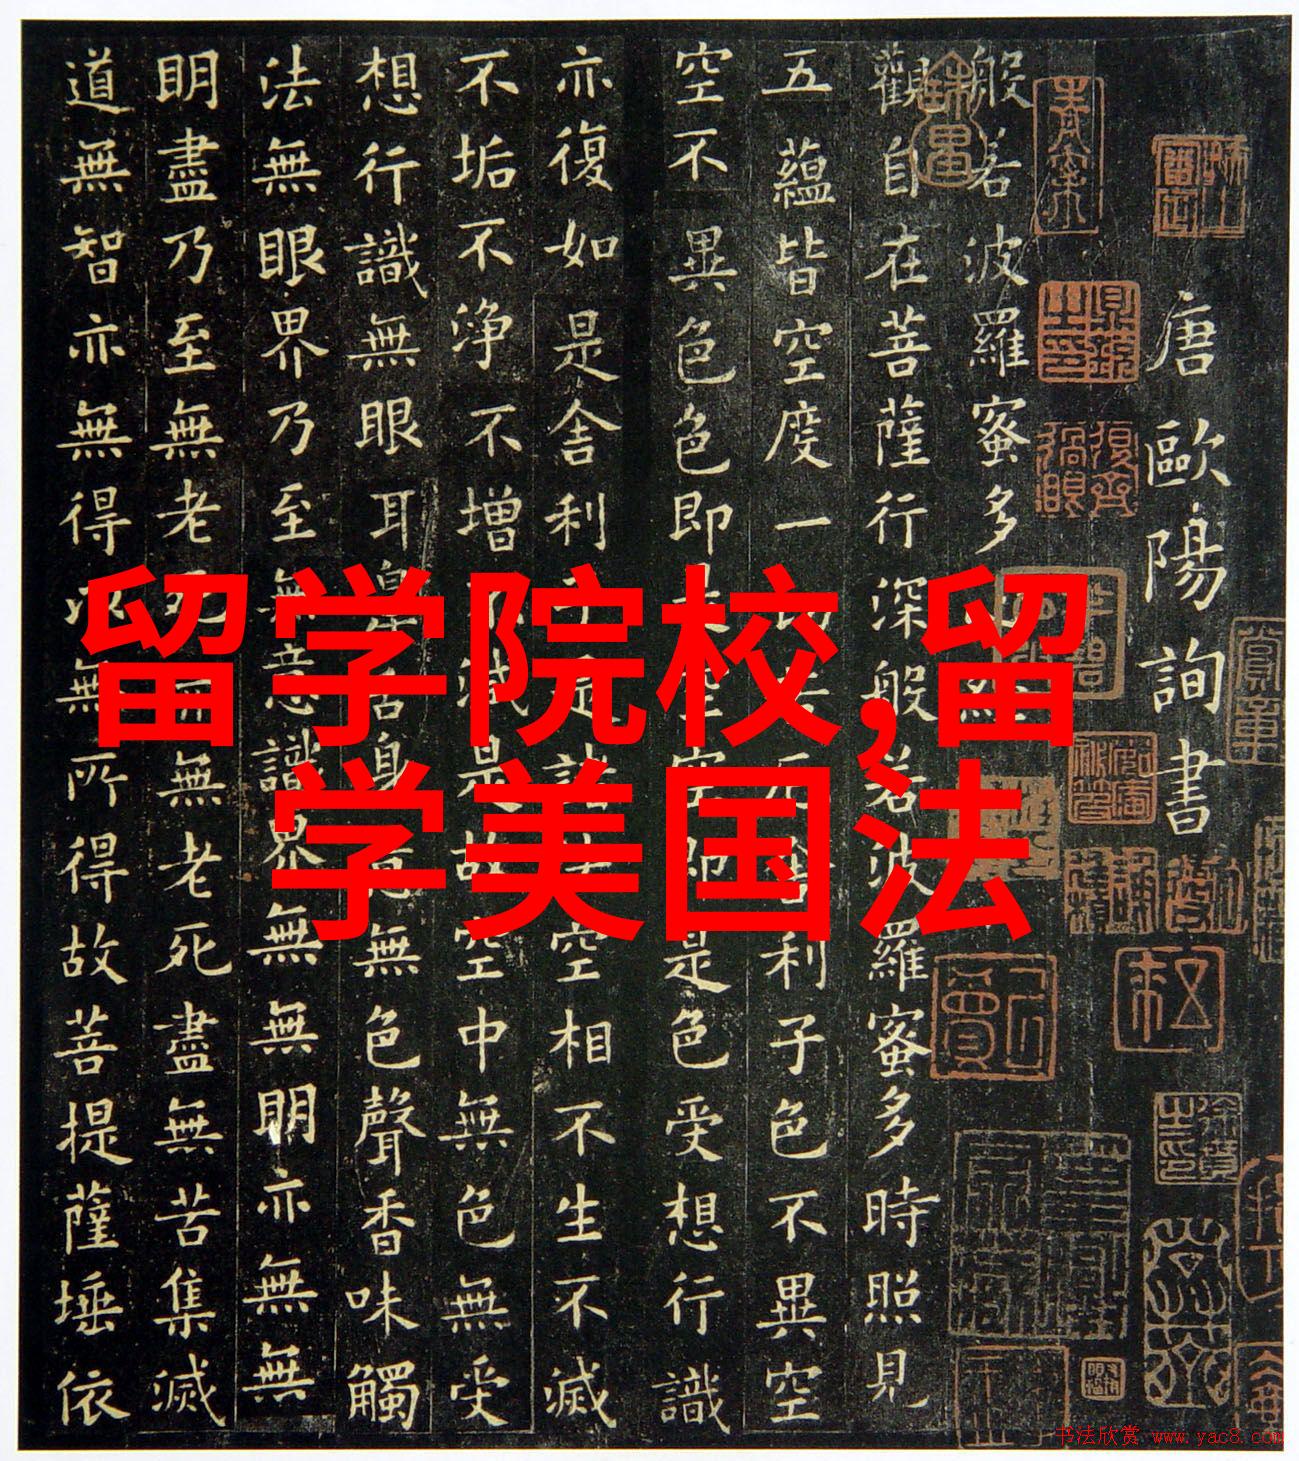 唐歐陽詢書
般若波羅蜜多
觀自在菩薩行深般若波羅蜜多時照見
五蘊皆空度一切苦厄舍利子色不異空
空不異色色即是空空即是色受想行識
亦復如是舍利子是諸法空相不生不滅
不垢不淨不增不減是故空中無色無受
想行識無眼耳鼻舌身意無色聲香味觸
法無眼界乃至無意識界無無明亦無無
明盡乃至無老死亦無老死盡無苦集滅
道無智亦無得以無所得故菩提薩埵依
留学院校,留
学美国法
书法欣赏 www.yac8.com